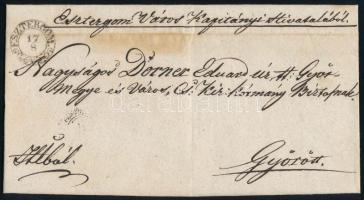 Esztergom Város Kapitányi Hivatalából.
ESZTERGOM
17
8
Nagyságos Dorner Eduard úr, Győr
Megye és Város, Cs: Kir: Kormány Biztosnak
Győrött.